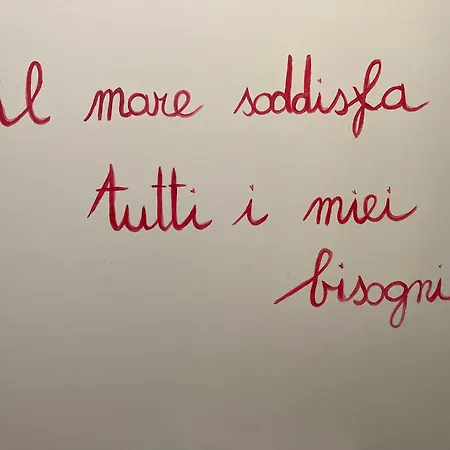 il mare soddisfa
tutti i miei
bisogni